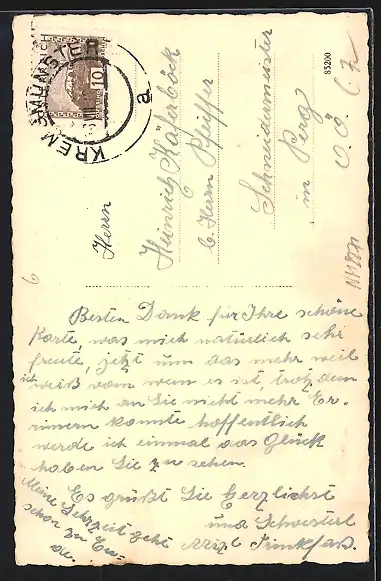 KREMSMÜNSTER
10
a
Herrn
Heinrich Käferböck
b. Herrn Pfeiffer
Schneidermeister
in Perg
O.Ö.
83200
6
Besten Dank für Ihre schöne
Karte, was mich natürlich sehr
freute, jetzt um das mehr weil
ich weiß vom wem es ist, trotzdem
ich mich an Sie nicht mehr Er-
rinnern konnte hoffentlich
werde ich einmal das Glück
haben Sie zu sehen.
Es grüßt Sie herzlichst
und Schwesterl
Mizl Trinkfaß.
Meine Lehrzeit geht
schon zu En-
de.